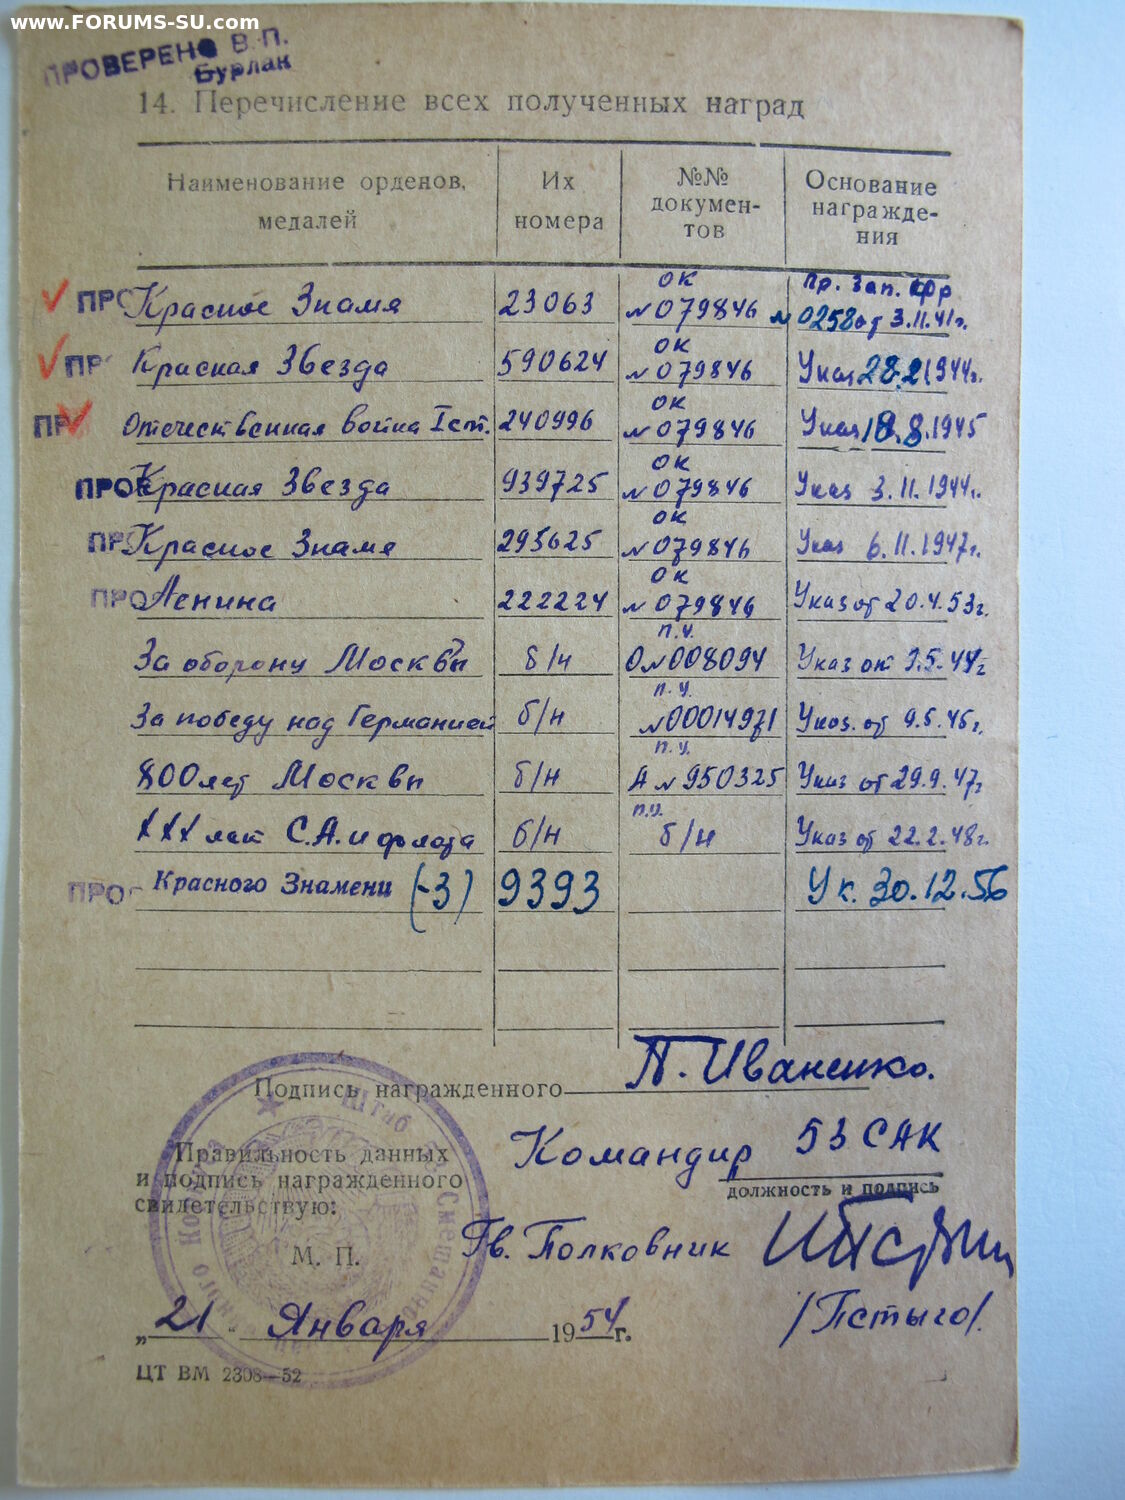 www.FORUMS-SU.com
ПРОВЕРЕНО В.П.
Бурлак
14. Перечисление всех полученных наград
Наименование орденов, медалей
Их номера
№№ докумен-
тов
Основание
награжде-
ния
ПРО Красное Знамя 23063 ОК №079846 Пр. Зап. фр №0258 от 3.11.41г.
ПР Красная Звезда 590624 ОК №079846 Указ 28.2.1944г.
ПР Отечественная война I ст. 240996 ОК №079846 Указ 18.8.1945
ПРОВ Красная Звезда 939725 ОК №079846 Указ 3.11.1944г.
ПР Красное Знамя 295625 ОК №079846 Указ 6.11.1947г.
ПРО Ленина 222224 ОК №079846 Указ от 20.4.53г.
За оборону Москвы б/н п.у. О№008094 Указ от 1.5.44г
За победу над Германией б/н п.у. №00014971 Указ. от 9.5.45г.
800 лет Москвы б/н п.у. А №950325 Указ от 29.9.47г
XXX лет С.А. и флота б/н п.у. б/н Указ от 22.2.48г.
ПРОВ Красного Знамени (-3) 9393 Ук. 30.12.56
Подпись награжденного П. Иваненко.
Правильность данных
и подпись награжденного
свидетельствую:
Командир 53 САК
должность и подпись
М. П.
Гв. Полковник
/Пстыго/.
„21" Января 1954 г.
ЦТ ВМ 2308—52
Штаб 53 Смешанного Корпуса